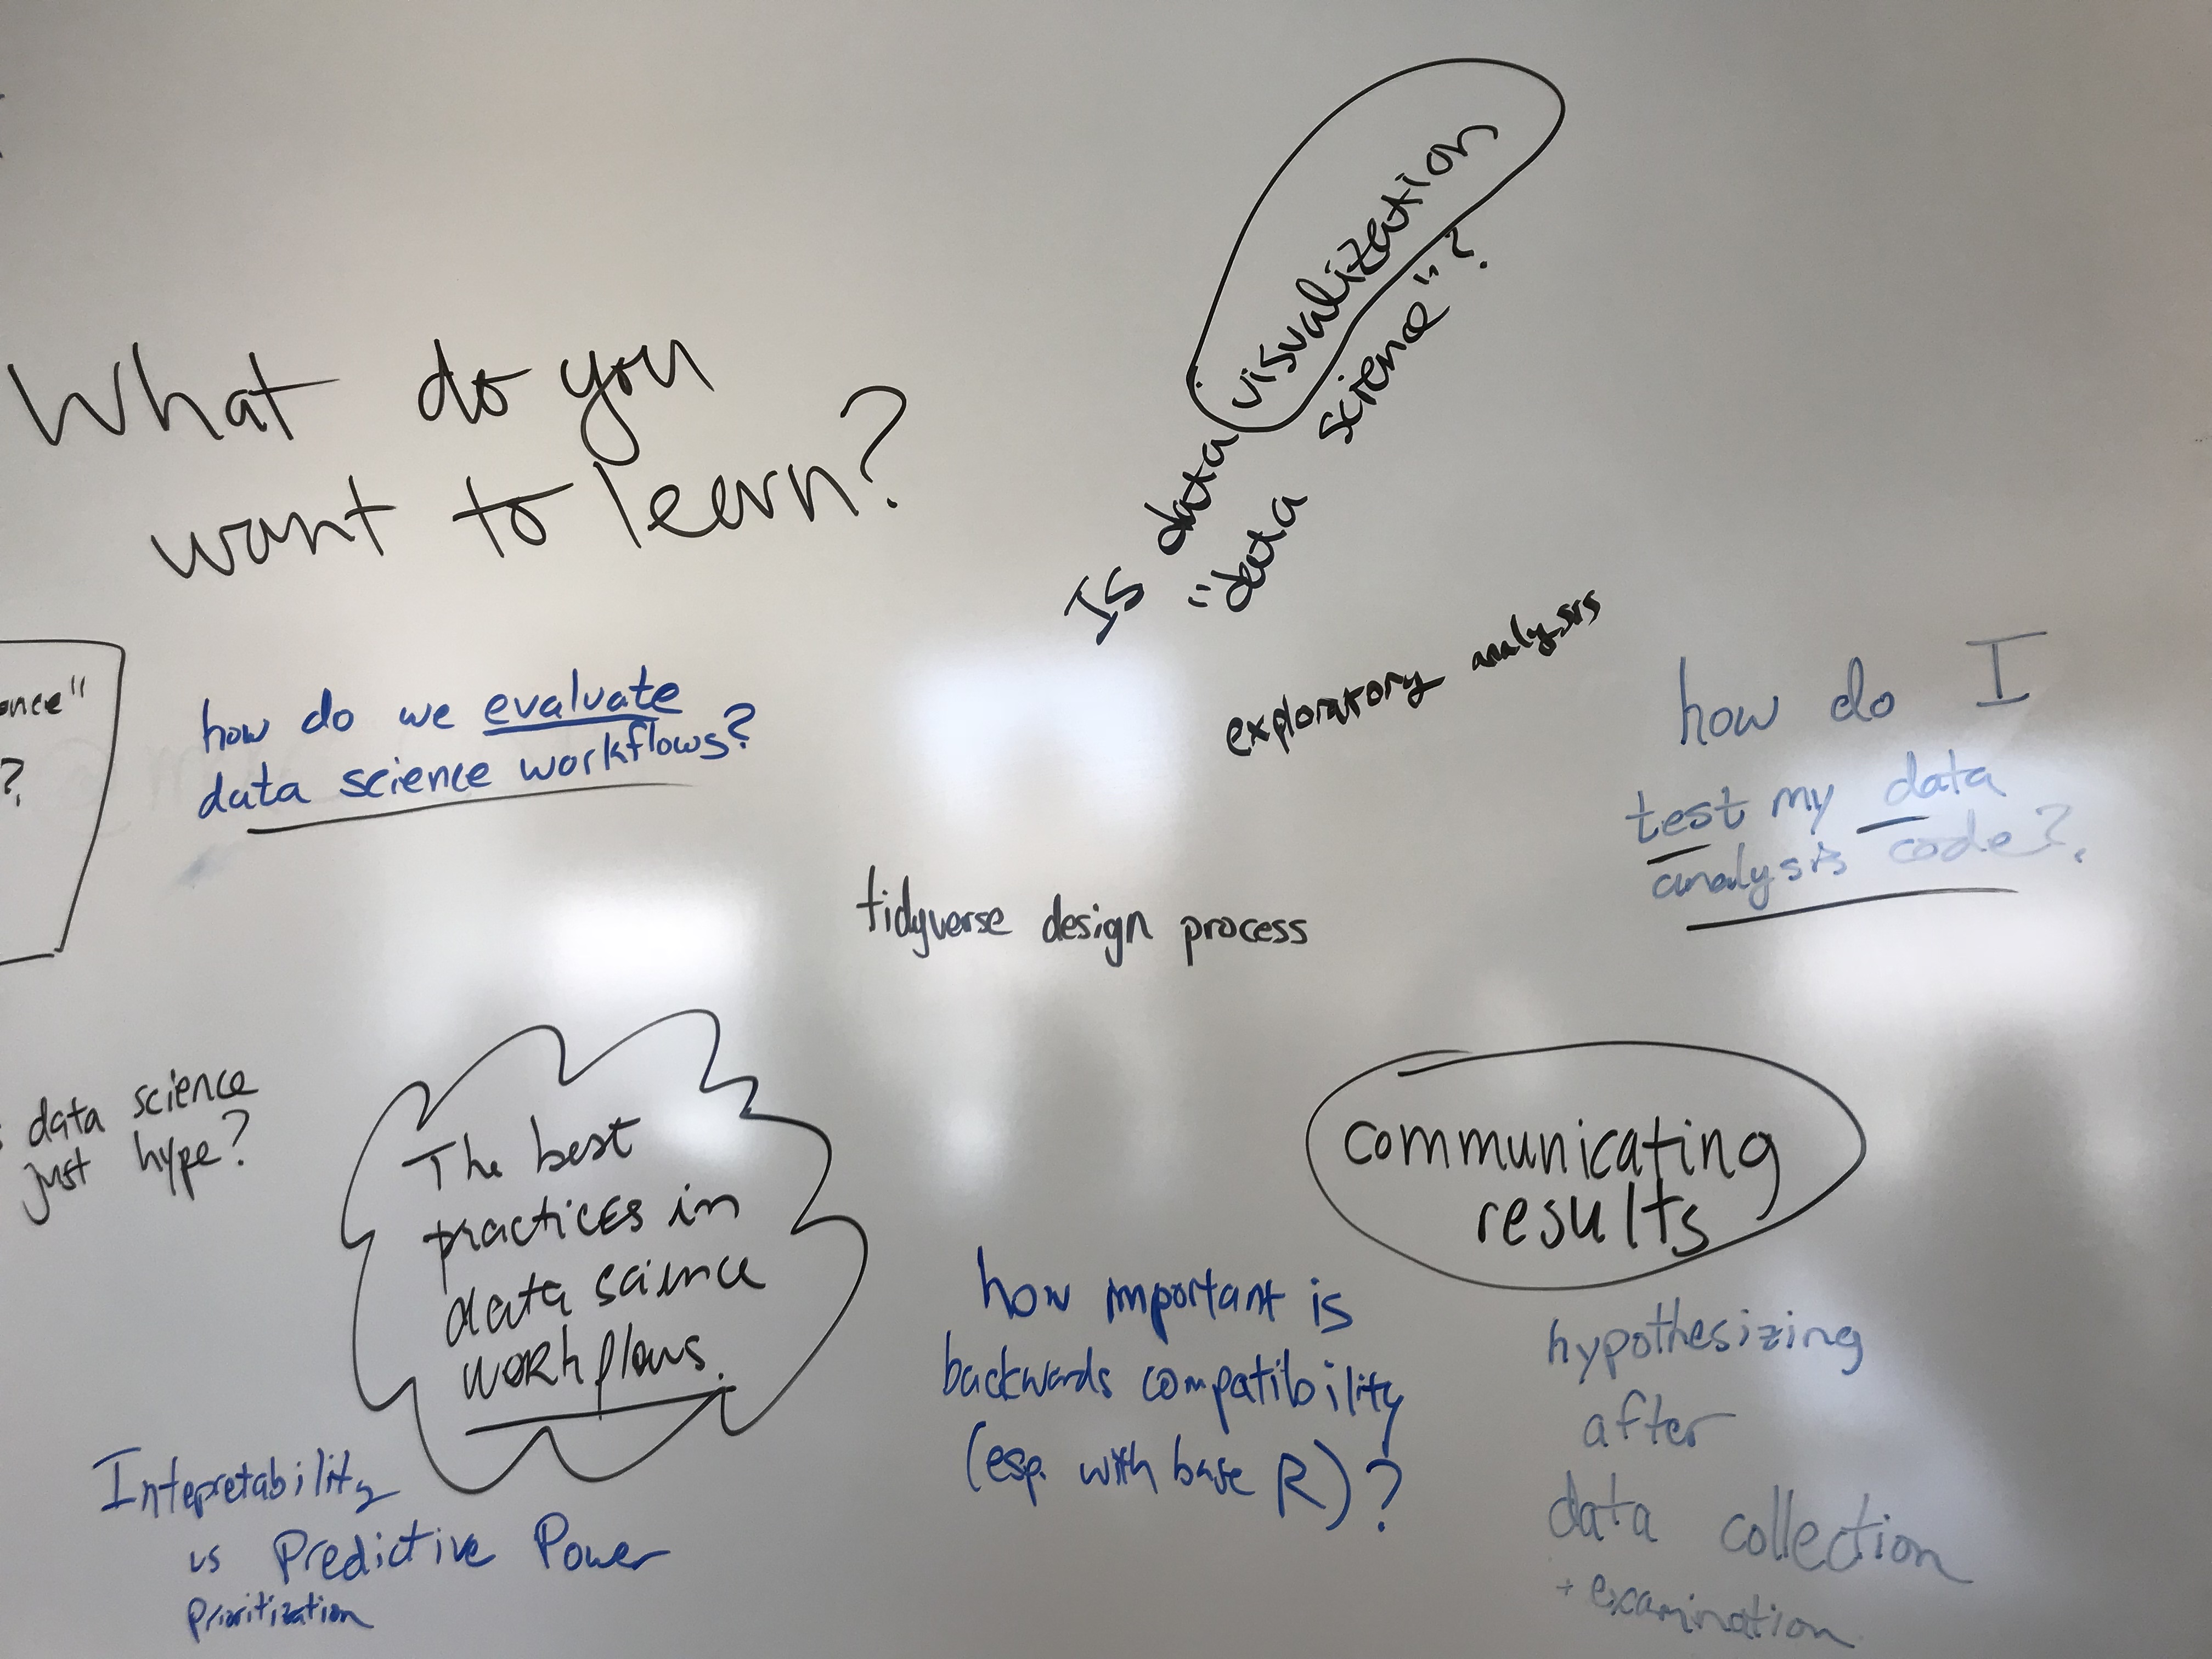 What do you
want to learn?
Is data visualization
"data science"?
exploratory analysis
how do we evaluate
data science workflows?
how do I
test my data
analysis code?
?
tidyverse design process
data science
just hype?
The best
practices in
data science
workflows.
communicating
results
how important is
backwards compatibility
(esp. with base R)?
hypothesizing
after
data collection
+ examination
Intepretability
vs Predictive Power
Prioritization